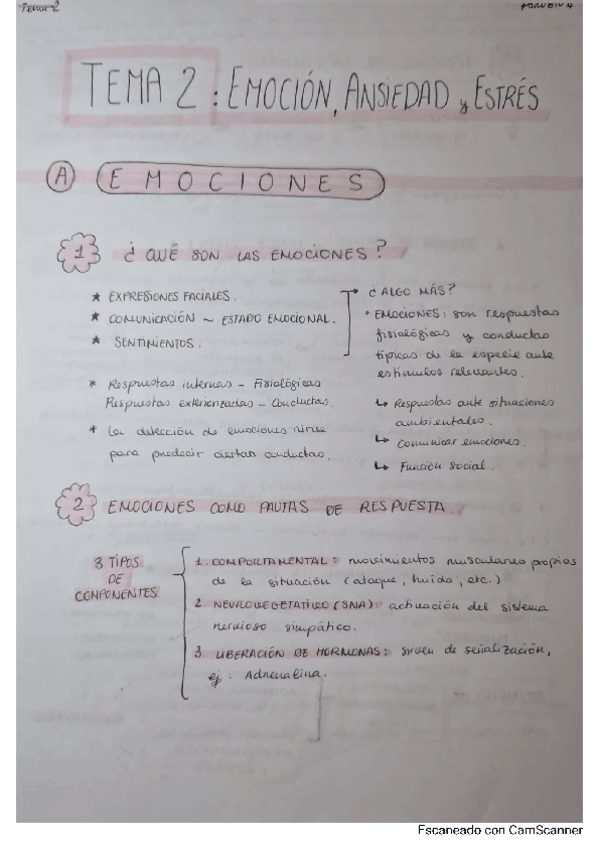 Tema 2
TEMA 2: EMOCIÓN, ANSIEDAD y ESTRÉS
A EMOCIONES
1 ¿QUÉ SON LAS EMOCIONES?
★ EXPRESIONES FACIALES.
★ COMUNICACIÓN ~ ESTADO EMOCIONAL.
★ SENTIMIENTOS.
* Respuestas internas - Fisiológicas
Respuestas exteriorizadas - Conductas.
* La detección de emociones sirve
para predecir ciertas conductas.
→ ¿ALGO MÁS?
• EMOCIONES: son respuestas
fisiológicas y conductas
típicas de la especie ante
estímulos relevantes.
↳ Respuestas ante situaciones
ambientales.
↳ Comunicar emociones.
↳ Función social.
2 EMOCIONES COMO PAUTAS DE RESPUESTA.
3 TIPOS
DE
COMPONENTES
1. COMPORTAMENTAL: movimientos musculares propios
de la situación (ataque, huida, etc.)
2. NEUROVEGETATIVO (SNA): activación del sistema
nervioso simpático.
3. LIBERACIÓN DE HORMONAS: sirven de señalización,
ej: Adrenalina.
Escaneado con CamScanner